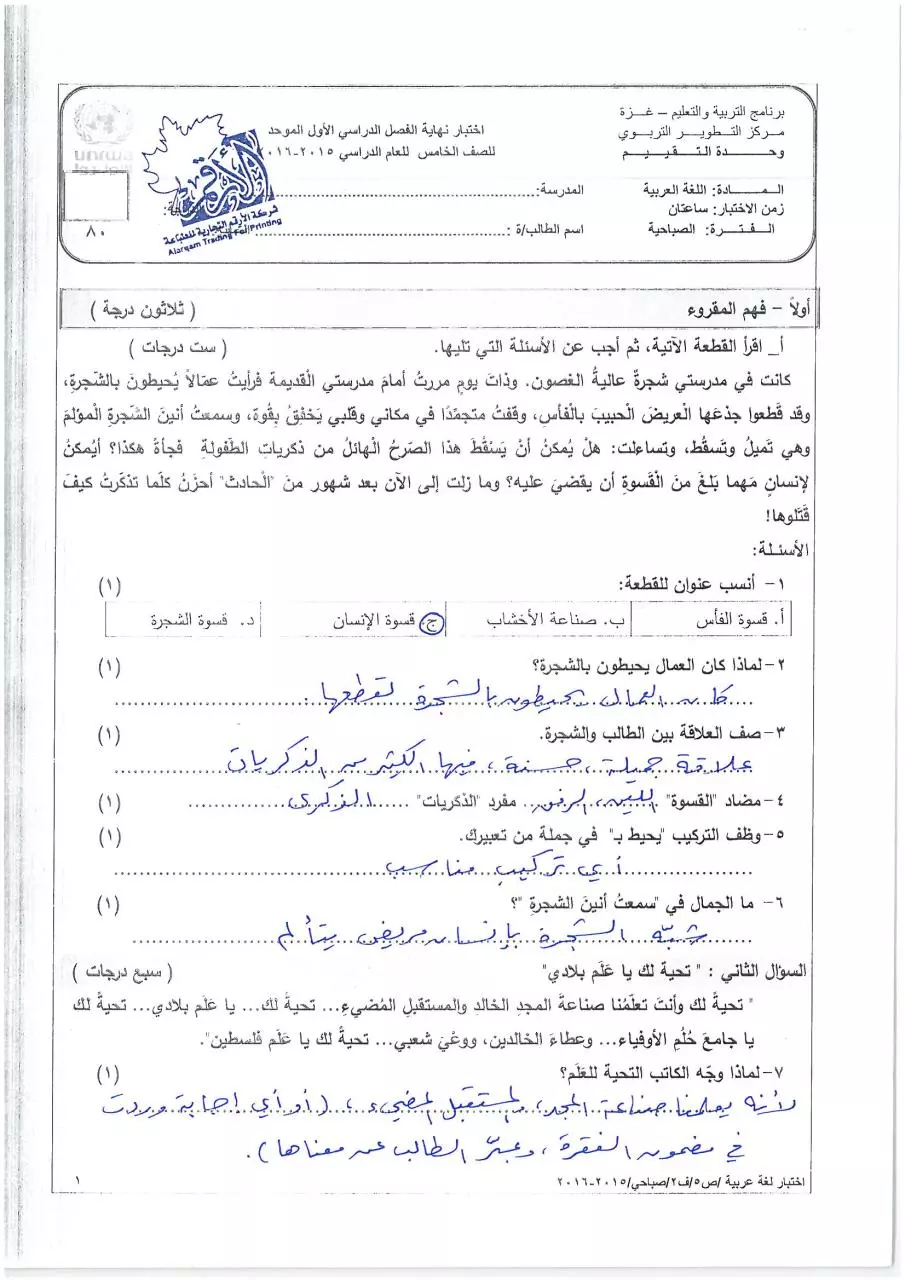 برنامج التربية والتعليم – غـزة
مركز التطوير التربوي
وحـدة التـقـييـم
اختبار نهاية الفصل الدراسي الأول الموحد
للصف الخامس للعام الدراسي ٢٠١٥-٢٠١٦
unrwa
الأرقم
شركة الأرقم التجارية للطباعة
Alarqam Trading For Printing
المـــادة: اللغة العربية
زمن الاختبار: ساعتان
الفـتـرة: الصباحية
المدرسة:
اسم الطالب/ة :
٨٠
أولاً – فهم المقروء ( ثلاثون درجة )
أ_ اقرأ القطعة الآتية، ثم أجب عن الأسئلة التي تليها. ( ست درجات )
كانت في مدرستي شجرةٌ عاليةُ الغصون. وذاتَ يومٍ مررتُ أمامَ مدرستي الْقديمة فرأيتُ عمّالاً يُحيطونَ بالشّجرةِ،
وقد قَطعوا جذعَها الْعريضَ الْحبيبَ بالْفأسِ، وقفتُ متجمّدًا في مكاني وقلبي يَخفِقُ بِقُوة، وسمعتُ أنينَ الشّجرةِ المؤلمَ
وهي تَميلُ وتَسقُط، وتساءلت: هلْ يُمكنُ أنْ يَسْقُطَ هذا الصرَحُ الْهائلُ من ذكرياتِ الطّفولةِ فجأةً هكذا؟ أيُمكنُ
لإنسانٍ مَهما بَلغَ منَ الْقَسوةِ أن يقضيَ عليه؟ وما زلت إلى الآن بعد شهور منَ "الْحادث" أحزَنُ كلّما تذكّرتُ كيفَ
قَتَلوها!
الأسئلة:
١- أنسب عنوان للقطعة: (١)
أ. قسوة الفأس ب. صناعة الأخشاب ج. قسوة الإنسان د. قسوة الشجرة
٢-لماذا كان العمال يحيطون بالشجرة؟ (١)
كان العمال يحيطون بالشجرة لقطعها.
٣-صف العلاقة بين الطالب والشجرة. (١)
علاقة جميلة، حسنة، فيها الكثير من الذكريات
٤- مضاد "القسوة" اللين، الرفق مفرد "الذكريات" الذكرى (١)
٥-وظف التركيب "يحيط بـ" في جملة من تعبيرك. (١)
أي تركيب مناسب
٦- ما الجمال في "سمعتُ أنينَ الشجرةِ "؟ (١)
شبّه الشجرة بإنسان مريض يتألم
السؤال الثاني : " تحية لك يا عَلَم بلادي" ( سبع درجات )
" تحيةً لك وأنتَ تعلّمُنا صناعةَ المجدِ الخالدِ والمستقبلِ المُضيءِ... تحيةً لك... يا عَلَم بلادي... تحيةً لك
يا جامعَ حُلُمِ الأوفياء... وعطاءَ الخالدين، ووعْيَ شعبي... تحيةً لك يا عَلَم فلسطين".
٧-لماذا وجّه الكاتب التحية للعَلَم؟ (١)
لأنه يعلمنا صناعة المجد، والمستقبل المضيء، (أو أي إجابة وردت
في مضمون الفقرة، وعبّر الطالب عن معناها).
اختبار لغة عربية /ص٥/ف٢/صباحي/٢٠١٥-٢٠١٦ ١